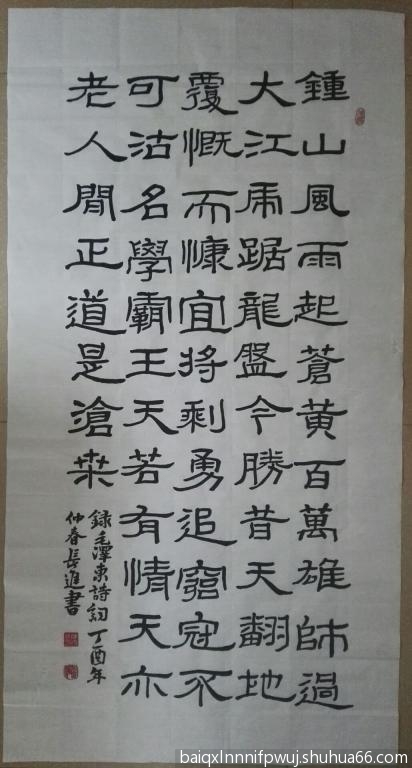 鍾山風雨起蒼黃百萬雄師過
大江虎踞龍盤今勝昔天翻地
覆慨而慷宜將剩勇追窮寇不
可沽名學霸王天若有情天亦
老人間正道是滄桑
錄毛澤東詩詞丁酉年
仲春長進書
baiqxlnnnifpwuj.shuhua66.com